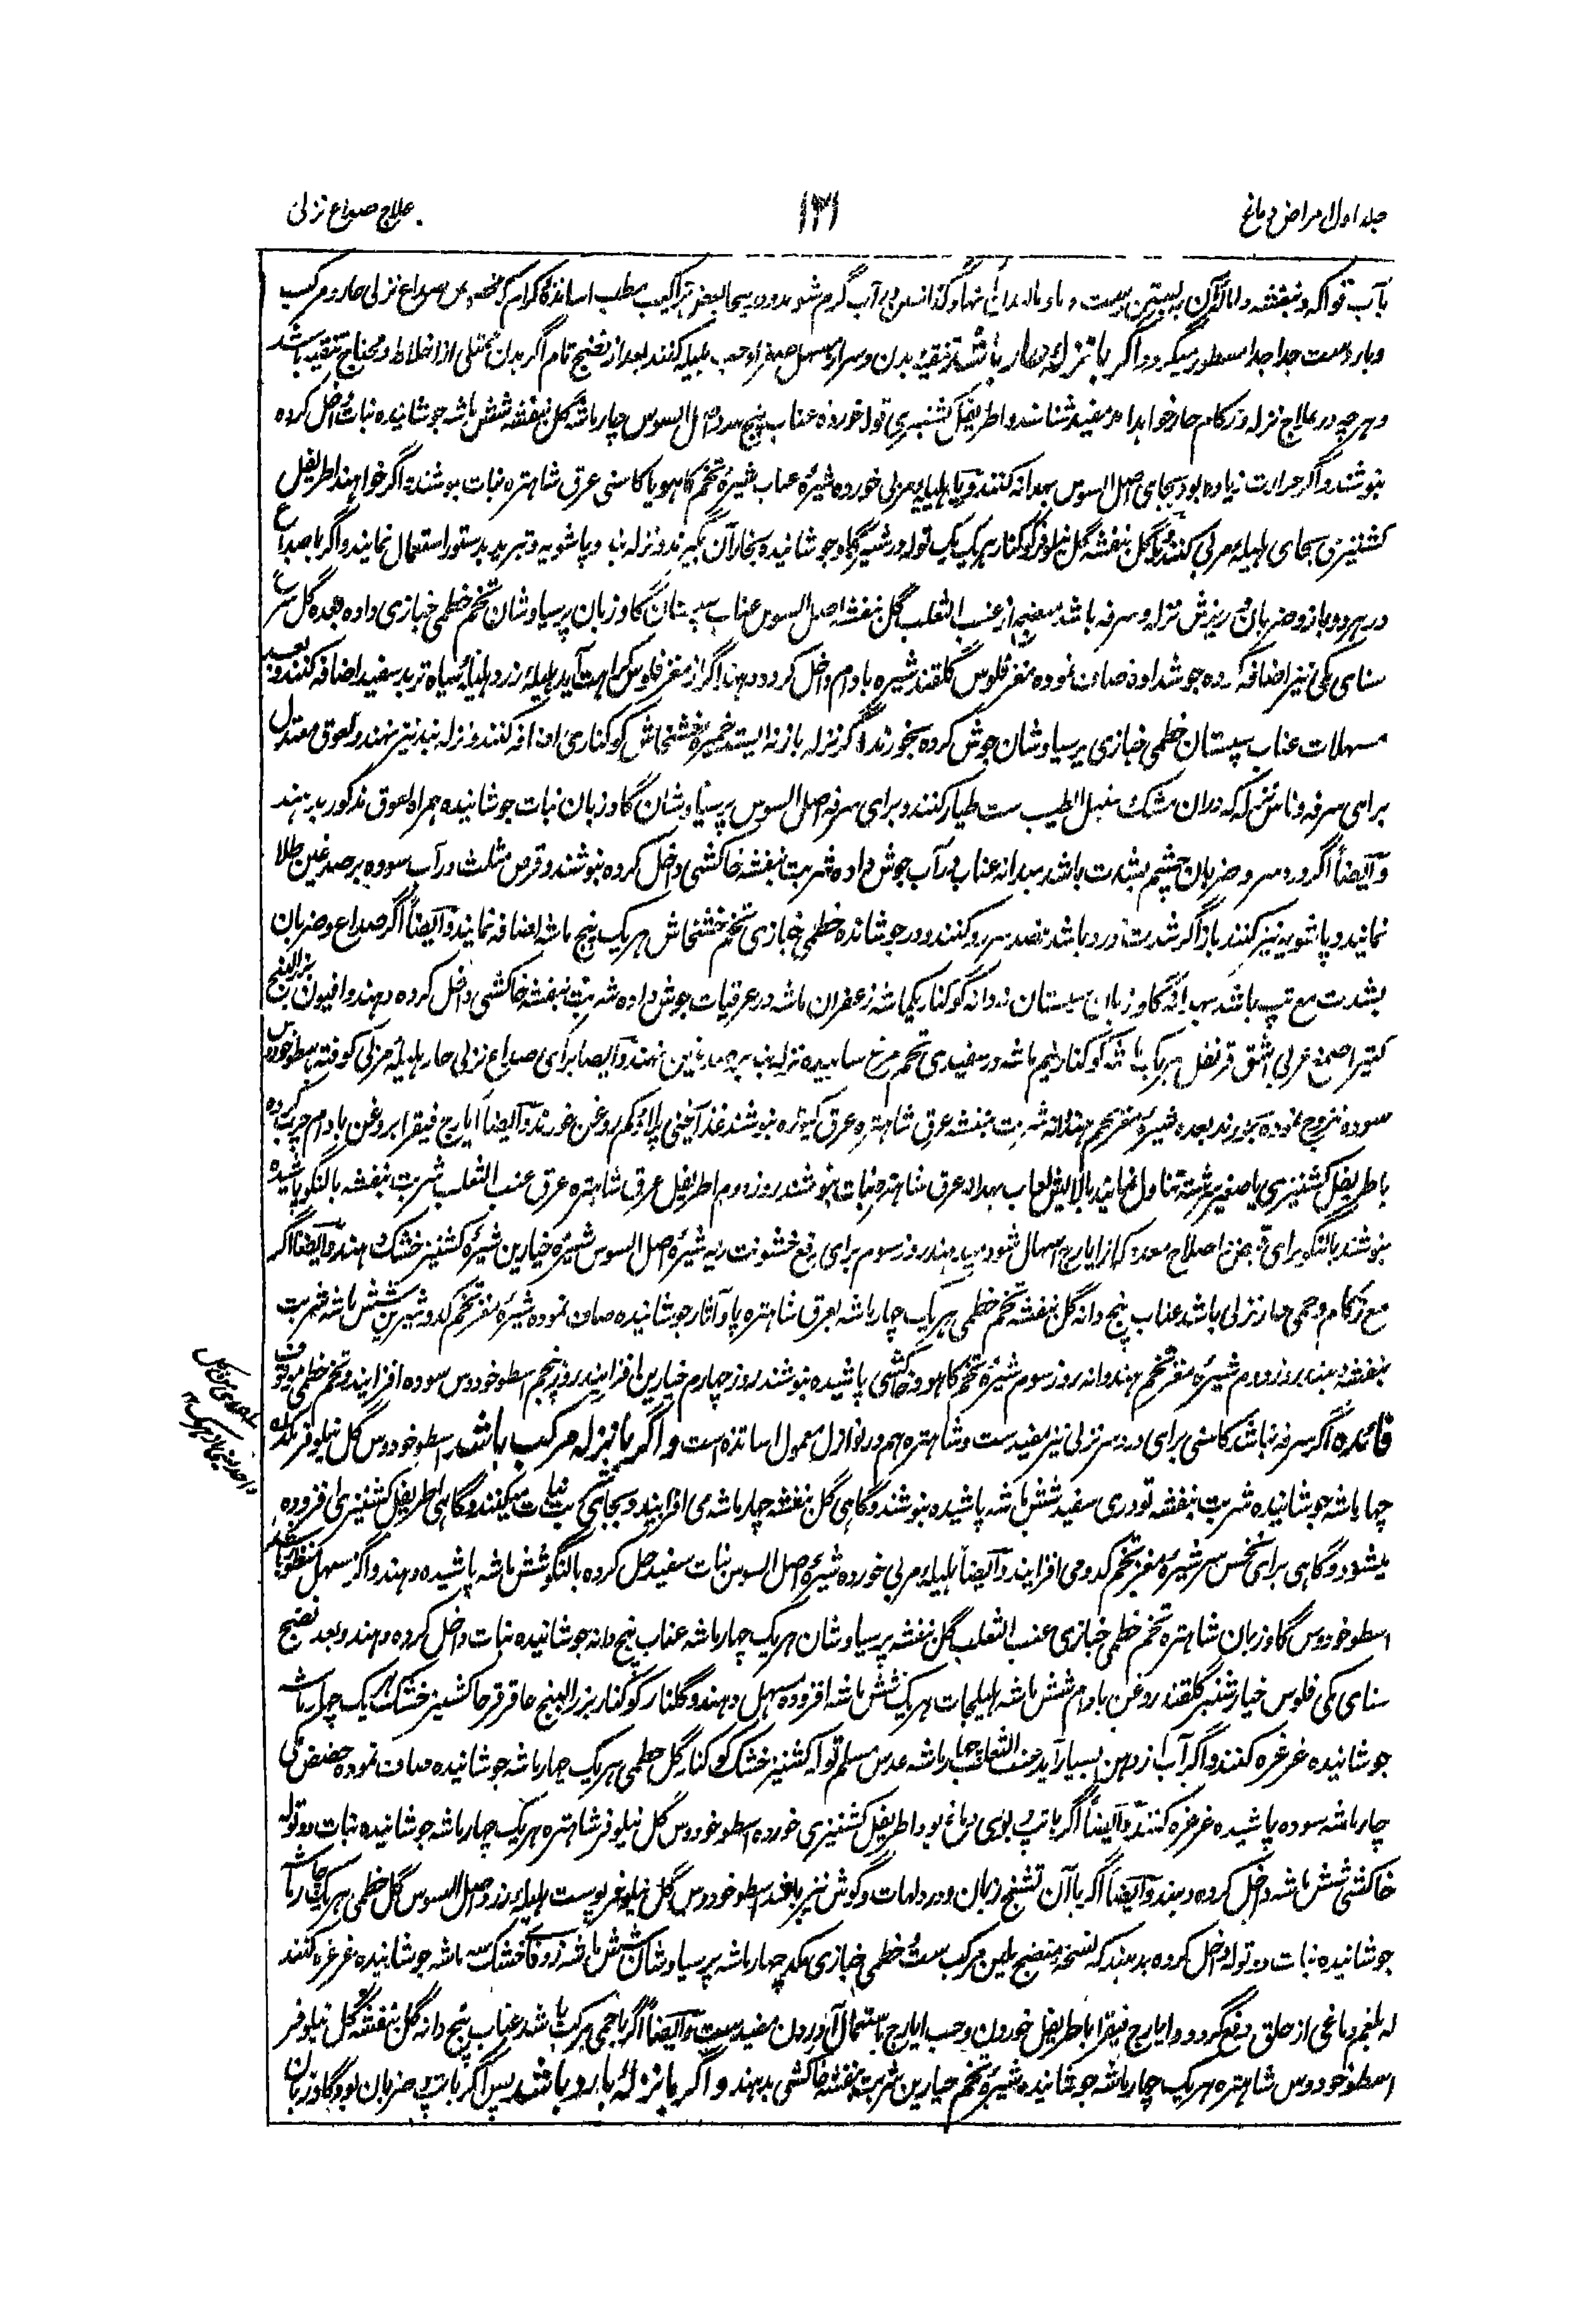 جلد اول امراض دماغ
۱۳۱
علاج صداع نزلی
بآب فواکه و بنفشه و امثال آن بر بستن دست و پا و مالیدن آنها و گذاشتن در آب گرم شود و درینجا بعض تراکیب مطب اساتذه کرام که مخصوص صداع نزلی حار و مرکب
و بارد ست جدا جدا مسطور میگردد و اگر با نزله حار باشد تنقیه بدن و سر از مسهل صفرا و حب بلیله کنند بعد از نضج تام اگر بدن ممتلی از اخلاط و محتاج تنقیه باشد
و هر چه در علاج نزله و زکام حار خواهد آمد مفید شناسند و اطریفل کشنیزی توله خورده عناب پنج عدد اصل السوس چار ماشه گل بنفشه شش ماشه جوشانیده نبات داخل کرده
بنوشند و اگر حرارت زیاده بود بجای اصل السوس بهدانه کنند و یا هلیله مربی خورده شیره عناب شیره تخم کاهو یا کاسنی عرق شاهتره نبات بنوشند و اگر خواهند اطریفل
کشنیزی بجای هلیله مربی کنند و گل بنفشه گل نیلوفر کوکنار هر یک یک توله در شیر گاو جوشانیده بخار آن گیرند و نزله بند و پاشویه و تبرید بدستور استعمال نمایند و اگر با صداع
درد هر دو بازو و ضربان و ریزش نزله و سرفه باشد منضج از عنب الثعلب گل بنفشه اصل السوس عناب سپستان گاوزبان پرسیاوشان تخم خطمی خبازی داده بعده گل سرخ
سنای مکی نیز اضافه کرده جوش داده صاف نموده مغز فلوس گلقند شیره بادام داخل کرده دهند اگر از مغز فلوس کراهت آید هلیله زرد هلیله سیاه تربد سفید اضافه کنند و بعد
مسهلات عناب سپستان خطمی خبازی پرسیاوشان جوش کرده بخورند و اگر نزله باز نه ایستد خمیره خشخاش کوکناری اضافه کنند و نزله بند نیز نهند و لعوق معتدل
برای سرفه و ناس که دران مشک سنبل الطیب ست طیار کنند و برای سرفه اصل السوس پرسیاوشان گاوزبان نبات جوشانیده همراه لعوق مذکور بدهند
و ایضاً اگر درد سر و ضربان چشم بشدت باشد بهدانه عناب در آب جوش داده شربت بنفشه خاکشی داخل کرده بنوشند و قرص مثلث در آب سوده بر صدغین طلا
نمایند و پاشویه نیز کنند باز اگر شدت درد باشد قصد سرو کنند و در جوشانده خطمی خبازی تخم خشخاش هر یک پنج ماشه اضافه نمایند و ایضاً اگر صداع و ضربان
بشدت مع تپ باشد بهدانه گاوزبان سپستان نه دانه کوکنار یکماشه زعفران ماشه در عرقیات جوش داده شربت بنفشه خاکشی داخل کرده دهند و افیون بزر البنج
کتیرا صمغ عربی اشق قرنفل هر یک ماشه کوکنار نیم ماشه در سفیدی تخم مرغ سائیده نزله بند بر صدغین نهند و ایضاً برای صداع نزلی حار هلیله مربی کوفته باسطوخودوس
سوده ممزوج نموده بخورند بعده شیره مغز تخم هندوانه شربت بنفشه عرق شاهتره عرق کیوره بنوشند غذا یخنی پلاؤ کم روغن خورند و ایضاً ایارج فیقرا بروغن بادام چرب کرده
باطریفل کشنیزی یا صغیر سرشته تناول نمایند بالایش لعاب بهدانه عرق شاهتره نبات بنوشند روز دوم اطریفل عرق شاهتره عرق عنب الثعلب شربت بنفشه بالنگو پاشیده
بنوشند بالنگو برای قبض و اصلاح معده که از ایارج اسهال شود میدهند روز سوم برای رفع خشونت ریه شیره اصل السوس شیره خیارین شیره کشنیز خشک دهند و ایضاً اگر
مع زکام و حمی حار نزلی باشد عناب پنج دانه گل بنفشه تخم خطمی هر یک چار ماشه بعرق شاهتره پاو آثار جوشانیده صاف نموده شیره مغز تخم کدو شیرین شش ماشه شربت
بنفشه دهند بروز دوم شیره مغز تخم هندوانه روز سوم شیره تخم کاهو و خاکشی پاشیده بنوشند روز چهارم خیارین افزایند روز پنجم اسطوخودوس سوده افزایند و تخم خطمی موقوف
فائده اگر سرفه نباشد کاسنی برای درد سر نزلی نیز مفید ست و شاهتره هم در نوازل معمول اساتذه است و اگر با نزله مرکب باشد اسطوخودوس گل نیلوفر
چهار ماشه جوشانیده شربت بنفشه تودری سفید شش ماشه پاشیده بنوشند و گاهی گل بنفشه چهار ماشه می افزایند و بجای شربت نبات میکنند و گاهی اطریفل کشنیزی افزوده
میشود و گاهی برای تخس سر شیره مغز تخم کدو می افزایند و ایضاً هلیله مربی خورده شیره اصل السوس نبات سفید حل کرده بالنگو شش ماشه پاشیده دهند و اگر مسهل منظور باشد
اسطوخودوس گاوزبان شاهتره تخم خطمی خبازی عنب الثعلب گل بنفشه پرسیاوشان هر یک چهار ماشه عناب پنج دانه جوشانیده نبات داخل کرده دهند و بعد نضج
سنای مکی فلوس خیارشنبر گلقند روغن بادام شش ماشه هلیلجات هر یک شش ماشه افزوده مسهل دهند و گلنار کوکنار بزر البنج عاقرقرحا کشنیز خشک هر یک چهار ماشه
جوشانیده غرغره کنند و اگر آب از دهن بسیار آید عنب الثعلب چهار ماشه عدس مسلم توله کشنیز خشک کوکنار گل خطمی هر یک چهار ماشه جوشانیده صاف نموده حضض مکی
چار ماشه سوده پاشیده غرغره کنند و ایضاً اگر باتپ و بوی دماغ بود اطریفل کشنیزی خورده اسطوخودوس گل نیلوفر شاهتره هر یک چهار ماشه جوشانیده نبات دو توله
خاکشی شش ماشه داخل کرده دهند و ایضاً اگر با آن تشنج زبان و درد لهات و گوش نیز باشد اسطوخودوس گل نیلوفر پوست هلیله زرد اصل السوس گل خطمی هر یک چار ماشه
جوشانیده نبات دو توله داخل کرده بدهند که نسخه منضج ملین مرکب ست خطمی خبازی مکد چهار ماشه پرسیاوشان شش ماشه زوفا خشک سه ماشه جوشانیده غرغره کنند
که بلغم دماغی از حلق دفع گردد و ایارج فیقرا باطریفل خوردن و حب ایارج باستعمال آوردن مفید ست و ایضاً اگر با حمی مرکب باشد عناب پنج دانه گل بنفشه گل نیلوفر
اسطوخودوس شاهتره هر یک چهار ماشه جوشانیده شیره تخم خیارین شربت بنفشه خاکشی بدهند و اگر با نزله بارد باشد پس اگر باتپ و ضربان بود گاوزبان